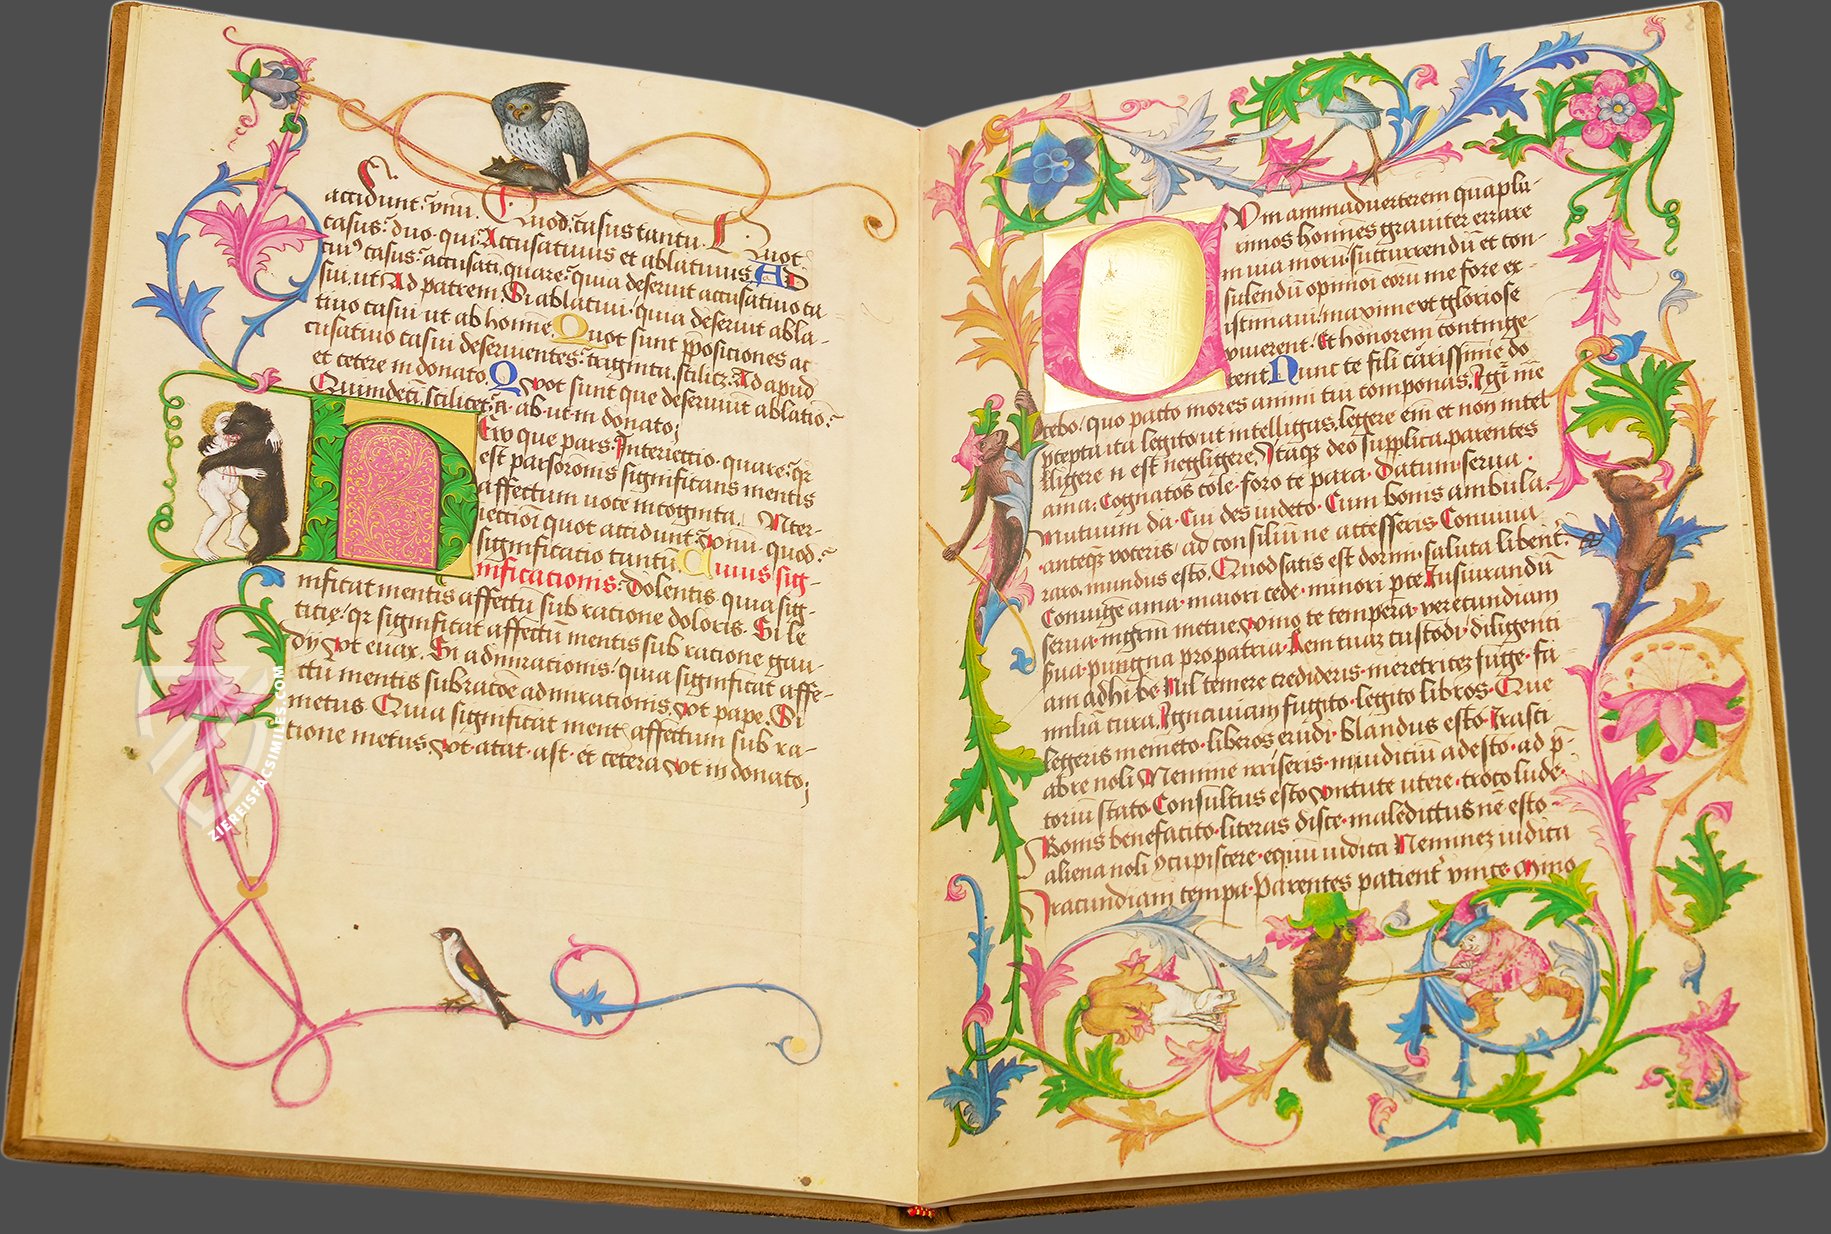 accidunt: vnu. Quod: casus tantu. Quot
casus: duo. qui: Accusatiuus et ablatiuus AD
cui9 casus: accusati, quare: quia deseruit accusatiuo ca
sui. ut: Ad patrem. Si ablatiui: quia deseruit abla-
tiuo casui ut ab homine. Quot sunt pposiciones ac
cusatiuo casui deseruientes: triginta. scilicz: Ad apud
et cetere in donato. Quot sunt que deseruiut ablatio:
Quindeci scilicet: a. ab. ut in donato;
que pars. Interiectio. quare: qr
est pars oronis significans mentis
affectum uoce incognita. Inter-
iectioi quot accidunt: vnu. quod:
significatio tantu Cuius sig-
nificationis: Dolentis quia sig-
nificat mentis affectu sub ratione doloris. Si le
titie: qr significat affectu mentis sub ratione gau-
dij vt euax. Si admirationis: quia significat affe-
ctu mentis sub racoe admirationis vt pape. Si
metus. Quia significat ment affectum sub ra-
tione metus vt atat. ast. et cetera vt in donato;
ZIEREISFACSIMILES.COM
Cvm animaduerterem quam plu-
rimos homines grauiter errare
in uia moru: succurrendu et con-
sulendu opinioi eoru me fore ex-
istimaui. maxime vt gloriose
viuerent. Et honorem continge-
rent. Nunc te fili carissime do
cebo: quo pacto mores animi tui componas. Igi me
pcepta ita legito ut intelligas. legere eni et non intel
lligere n est negligere. Itaque deo supplica. parentes
ama. Cognatos cole. foro te para. Datum serua.
Mutuum da. Cui des uideto. Cum bonis ambula.
anteque voceris: ad consiliu ne accesseris. Conuiua
raro. mundus esto. Quod satis est dormi. saluta libent:
Coniugem ama. maiori cede. minori pce. Iusiurandu
serua. nigrm metue. vino te tempera. verecundiam
sua. pungna pro patria. Rem tuaz custodi. diligenti
am adhibe. Nil temere credideris. meretricez fuge. Fa
milia cura. Ignauiam fugito. legito libros. Que
legeris memeto. liberos erudi. Blandus esto. Irasci
abre noli. Nemine irriseris. in iudiciu adesto. ad p-
toriu stato. Consultus esto. virtute utere. troco lude.
Bonis benefacito. literas disce. maledictus ne esto.
aliena noli ycupiscere. equu iudica. Neminez iudica
Iracundiam tempa. Parentes patient vince. Mino